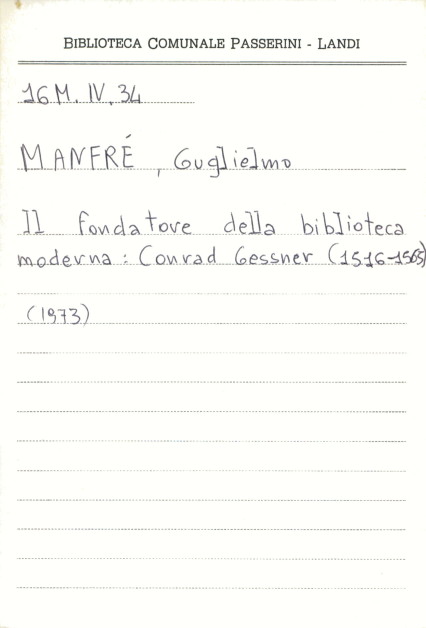 BIBLIOTECA COMUNALE PASSERINI - LANDI
16 M. IV. 34
MANFRÉ, Guglielmo
Il fondatore della biblioteca
moderna : Conrad Gessner (1516-1565)
(1973)